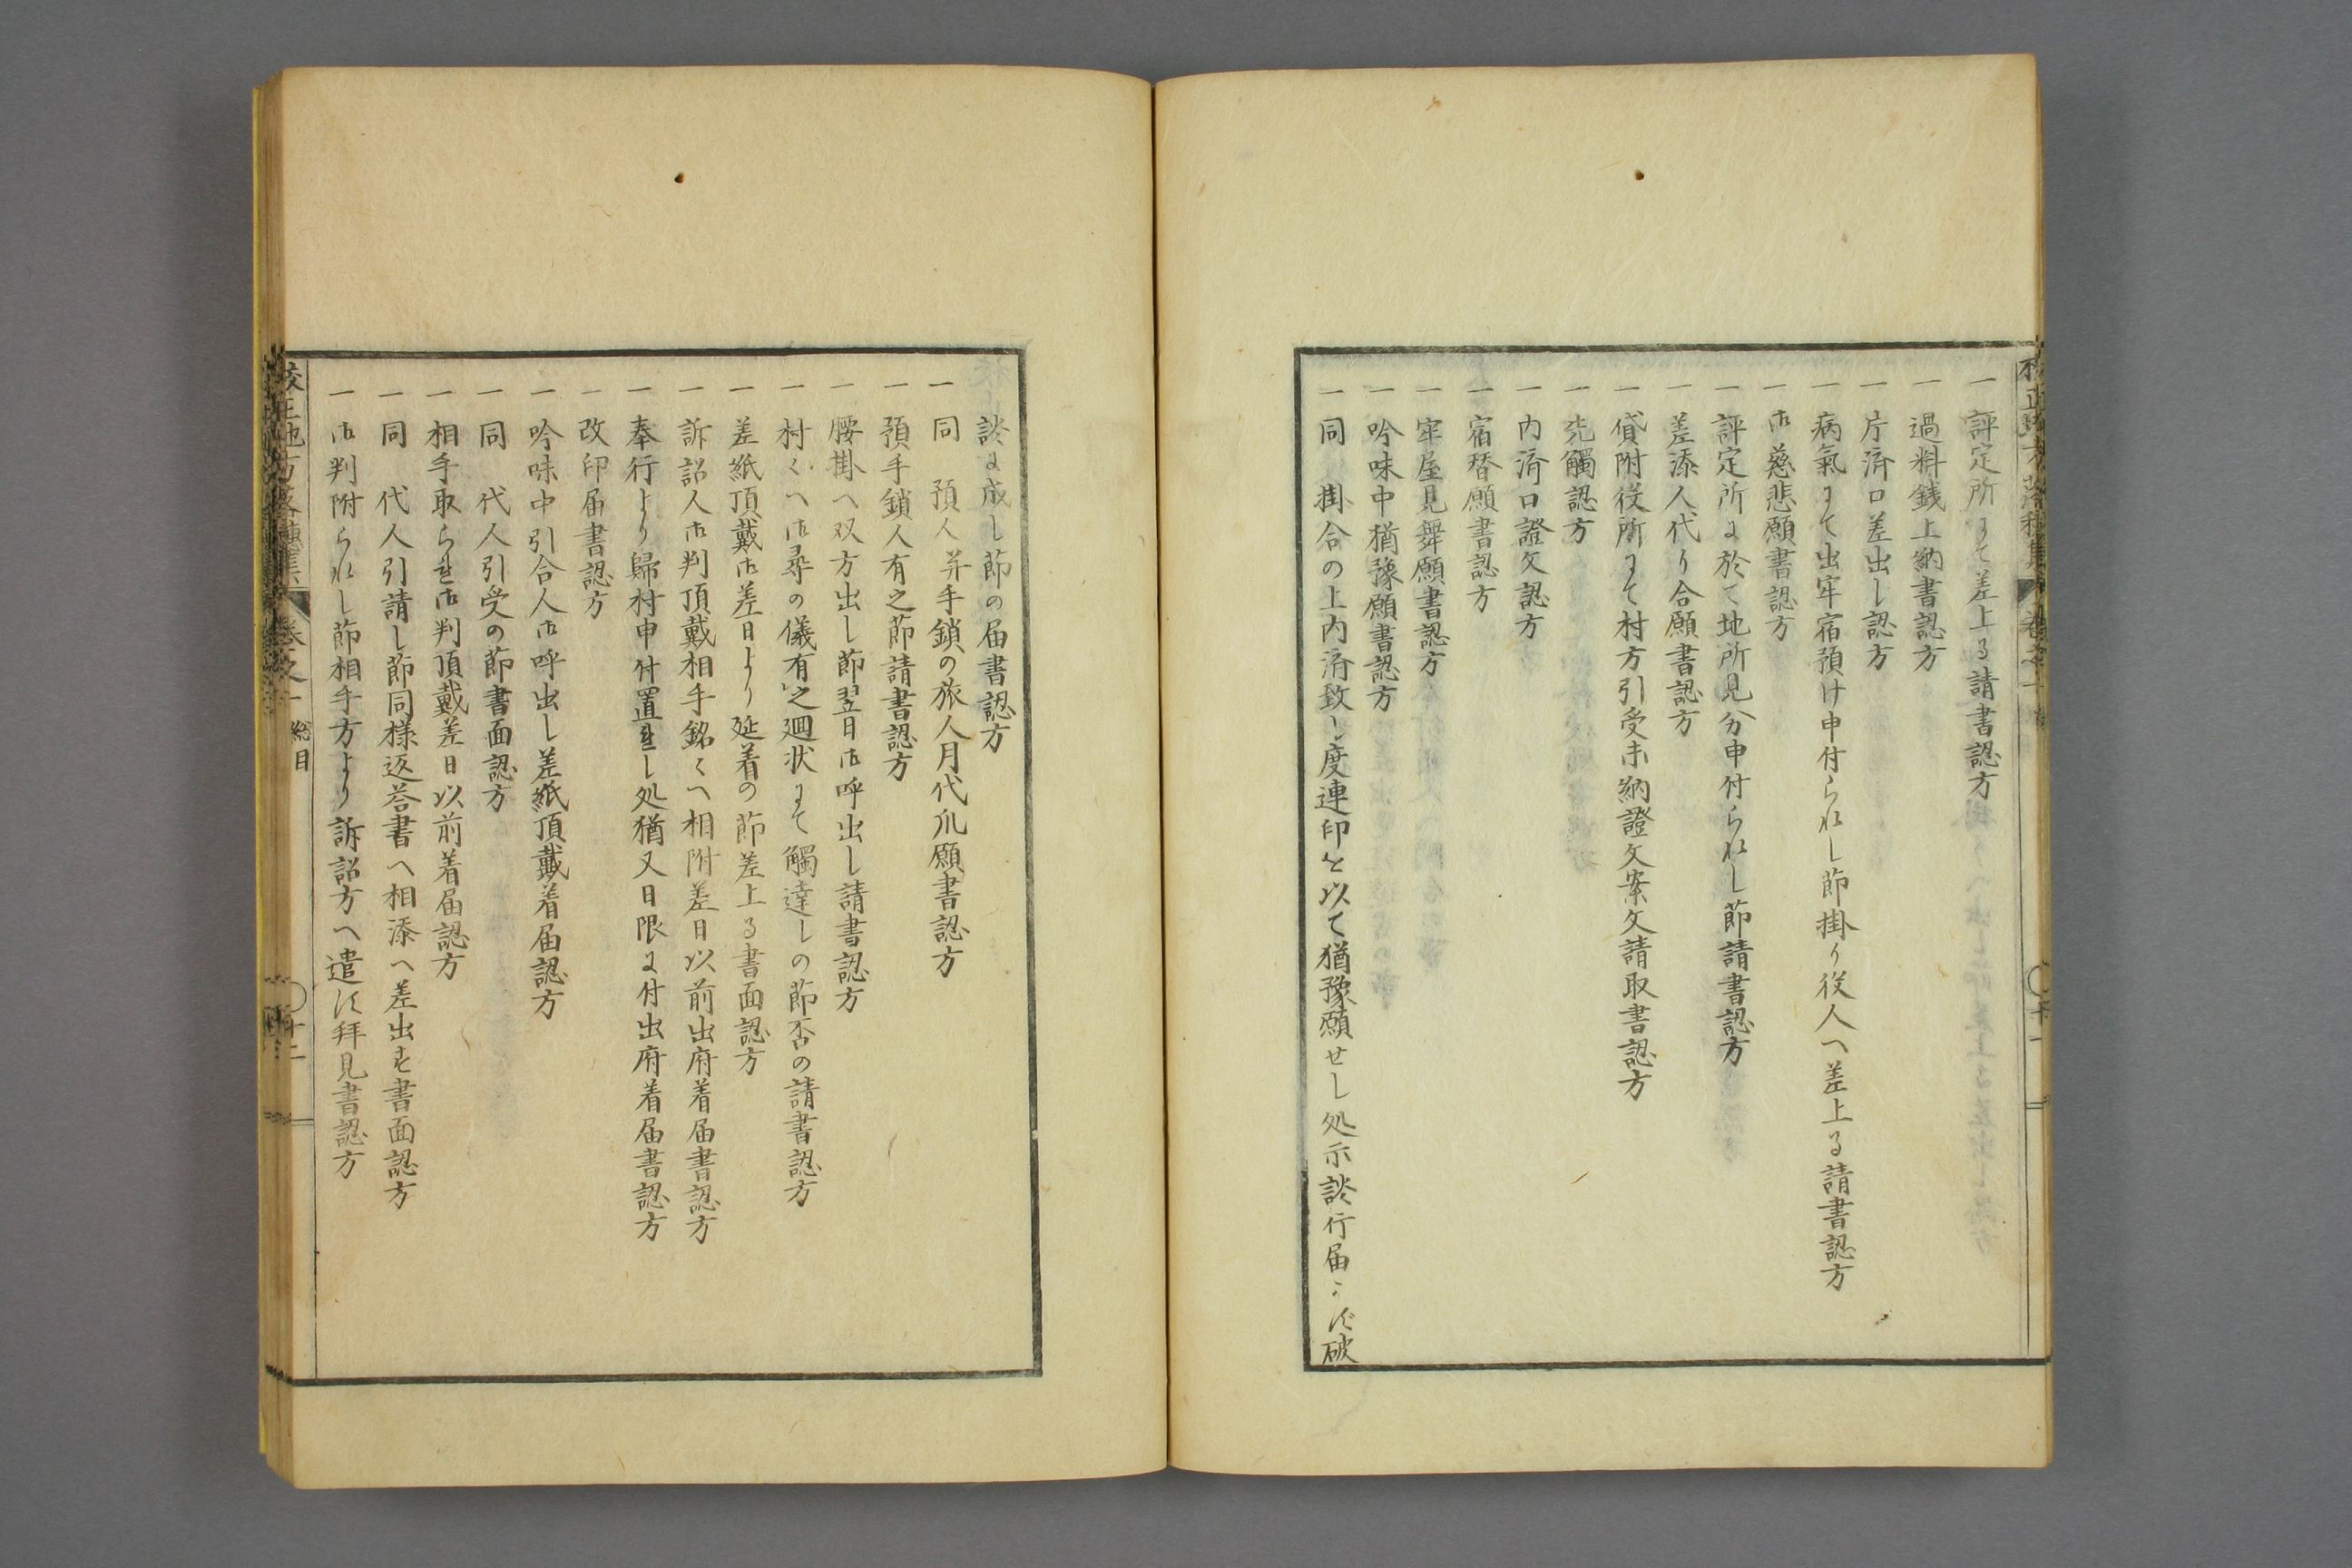 一 評定所にて差上る請書認方
一 過料銭上納書認方
一 片済口差出し認方
一 病氣にて出牢宿預け申付られし節掛り役人へ差上る請書認方
一 御慈悲願書認方
一 評定所に於て地所見分申付られし節請書認方
一 差添人代り合願書認方
一 貸附役所にて村方引受未納證文案文請取書認方
一 先觸認方
一 内済口證文認方
一 宿替願書認方
一 牢屋見舞願書認方
一 吟味中猶豫願書認方
一 同 掛合の上内済致し度連印を以て猶豫願せし処示談行届かず破
談に成し節の届書認方
一 同 預人并手鎖の旅人月代爪願書認方
一 預手鎖人有之節請書認方
一 腰掛へ双方出し節翌日御呼出し請書認方
一 村々へ御尋の儀有之廻状にて觸達しの節否の請書認方
一 差紙頂戴御差日より延着の節差上る書面認方
一 訴詔人御判頂戴相手銘々へ相附差日以前出府着届書認方
一 奉行より歸村申付置れし処猶又日限に付出府着届書認方
一 改印届書認方
一 吟味中引合人御呼出し差紙頂戴着届認方
一 同 代人引受の節書面認方
一 相手取られ御判頂戴差日以前着届認方
一 同 代人引請し節同様返荅書へ相添へ差出す書面認方
一 御判附られし節相手方より訴詔方へ遣す拜見書認方
校正地方落穂集 巻之一 総目 十二